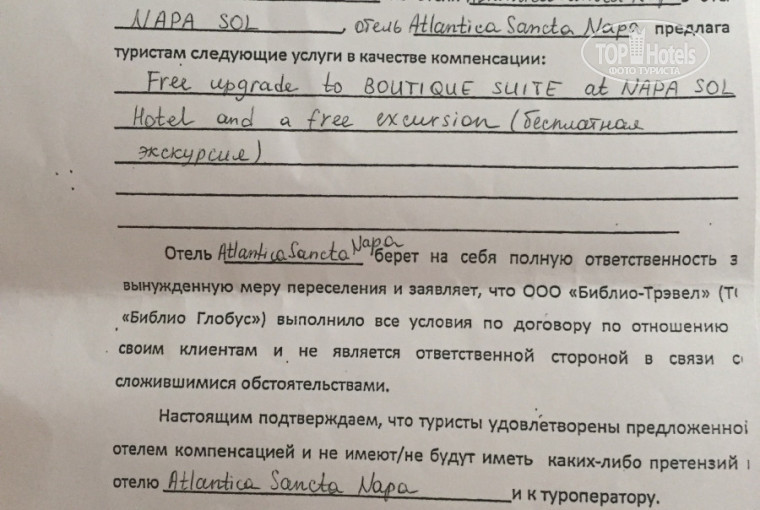 NAPA SOL, отель Atlantica Sancta Napa предлага
туристам следующие услуги в качестве компенсации:
Free upgrade to BOUTIQUE SUITE at NAPA SOL
Hotel and a free excursion (бесплатная
экскурсия)
Отель Atlantica Sancta Napa берет на себя полную ответственность з
вынужденную меру переселения и заявляет, что ООО «Библио-Трэвел» (ТО
«Библио Глобус») выполнило все условия по договору по отношению
своим клиентам и не является ответственной стороной в связи со
сложившимися обстоятельствами.
Настоящим подтверждаем, что туристы удовлетворены предложенной
отелем компенсацией и не имеют/не будут иметь каких-либо претензий
отелю Atlantica Sancta Napa и к туроператору.
TOPHotels
ФОТО ТУРИСТА